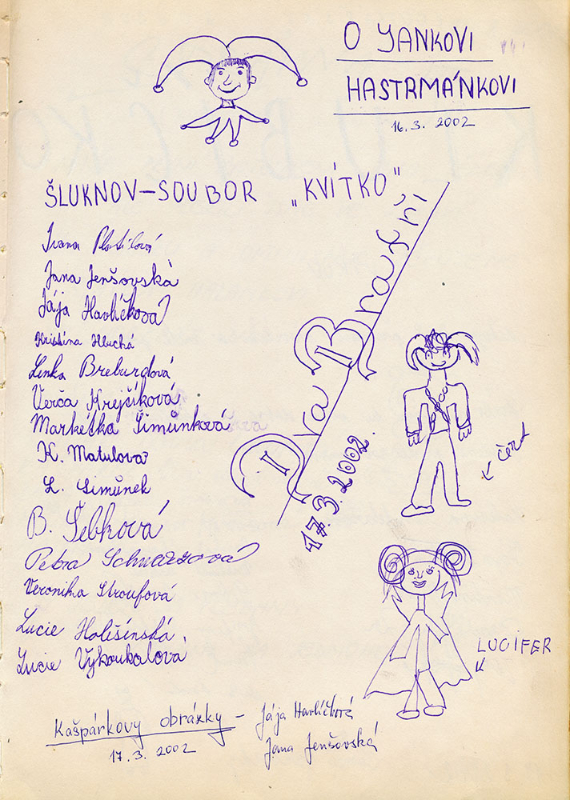 O YANKOVI
HASTRMÁNKOVI
16.3. 2002
ŠLUKNOV-SOUBOR „KVÍTKO"
Ivana
Jana Jenšovská
Jája Havlíčková
Kristina Hluchá
Lenka Breburdová
Verča Krejčíková
Markétka Šimůnková
K. Matulová
L. Šimůnek
B. Šebková
Petra Schwarzová
Veronika Stroufová
Lucie Holišinská
Lucie Vykoukalová
Dva Bratři
17.3.2002.
čert
LUCIFER
Kašpárkovy obrázky - Jája Havlíčková
17.3.2002
Jana Jenšovská